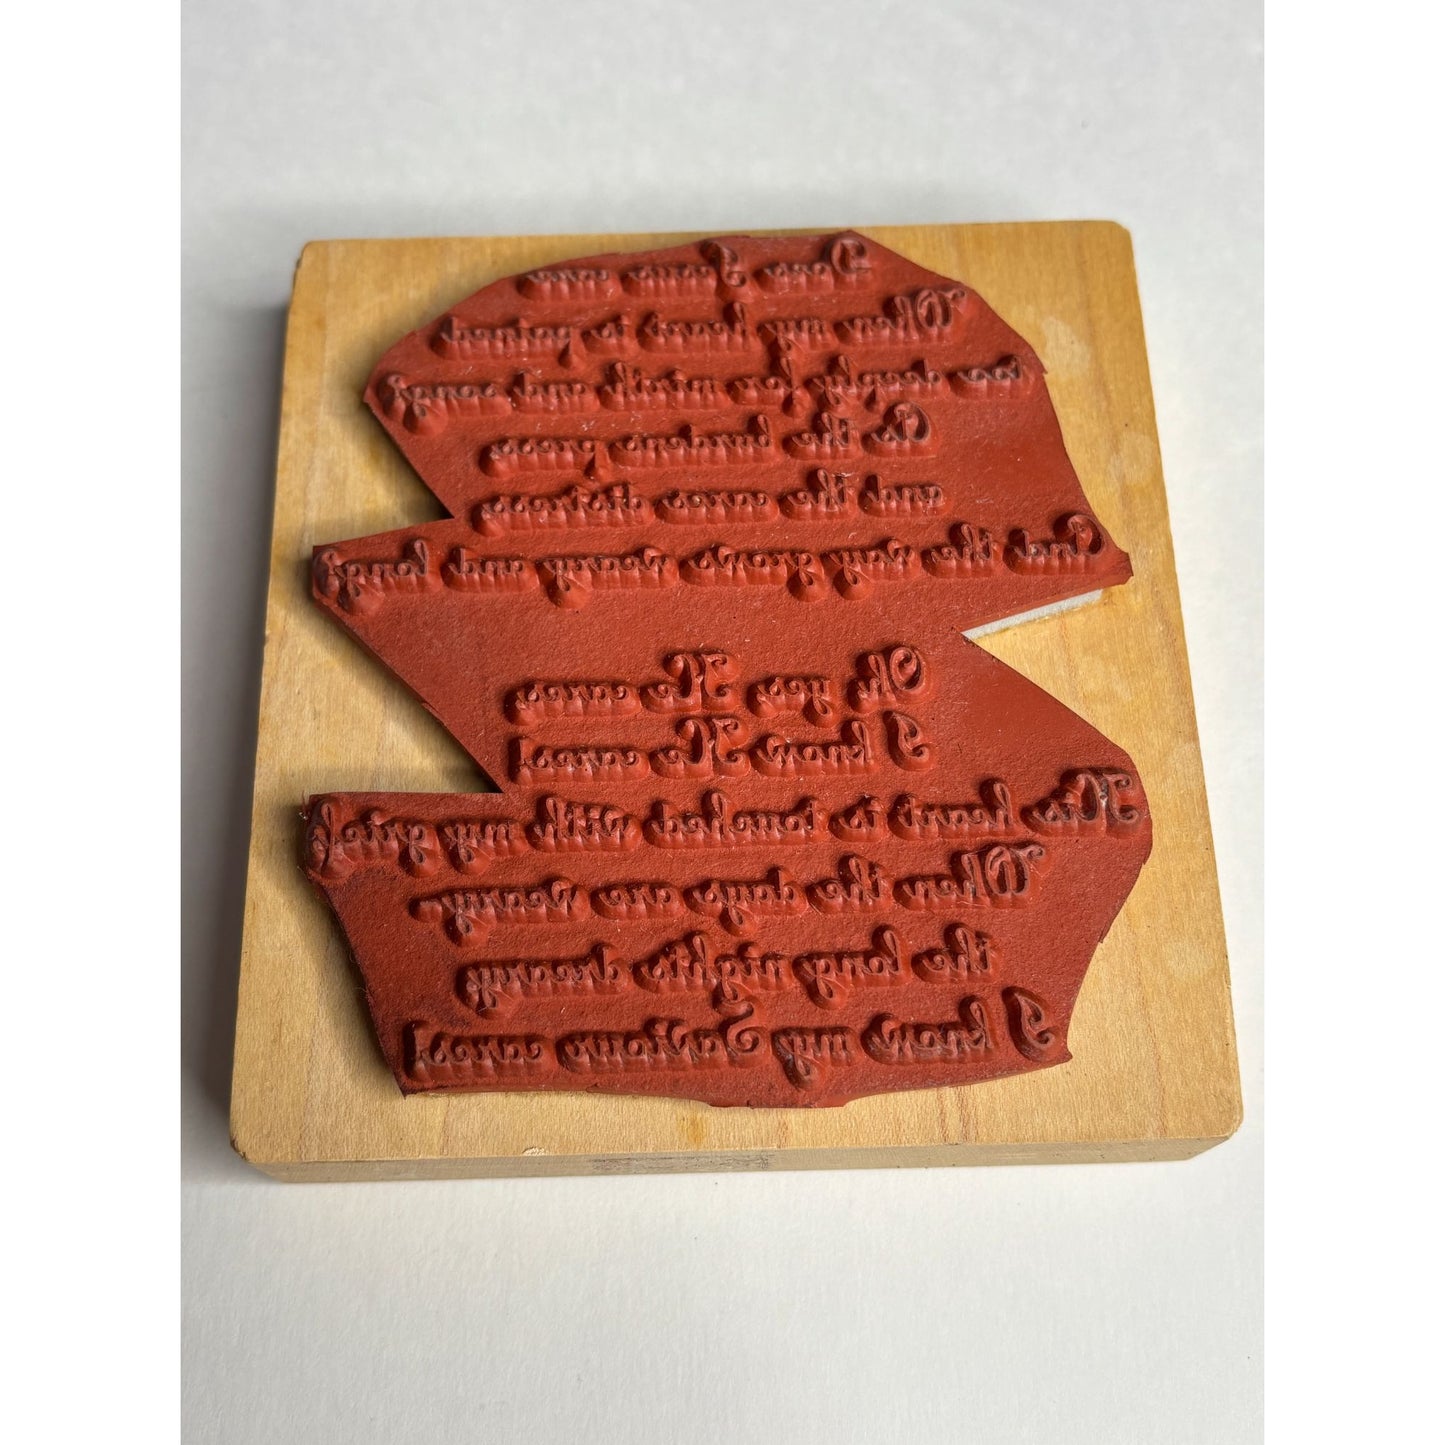 Does Jesus care
When my heart is pained
too deeply for mirth and song?
As the burdens press
and the cares distress
And the way grows weary and long?
Oh, yes, He cares,
I know He cares!
His heart is touched with my grief;
When the days are weary,
the long nights dreary,
I know my Saviour cares!